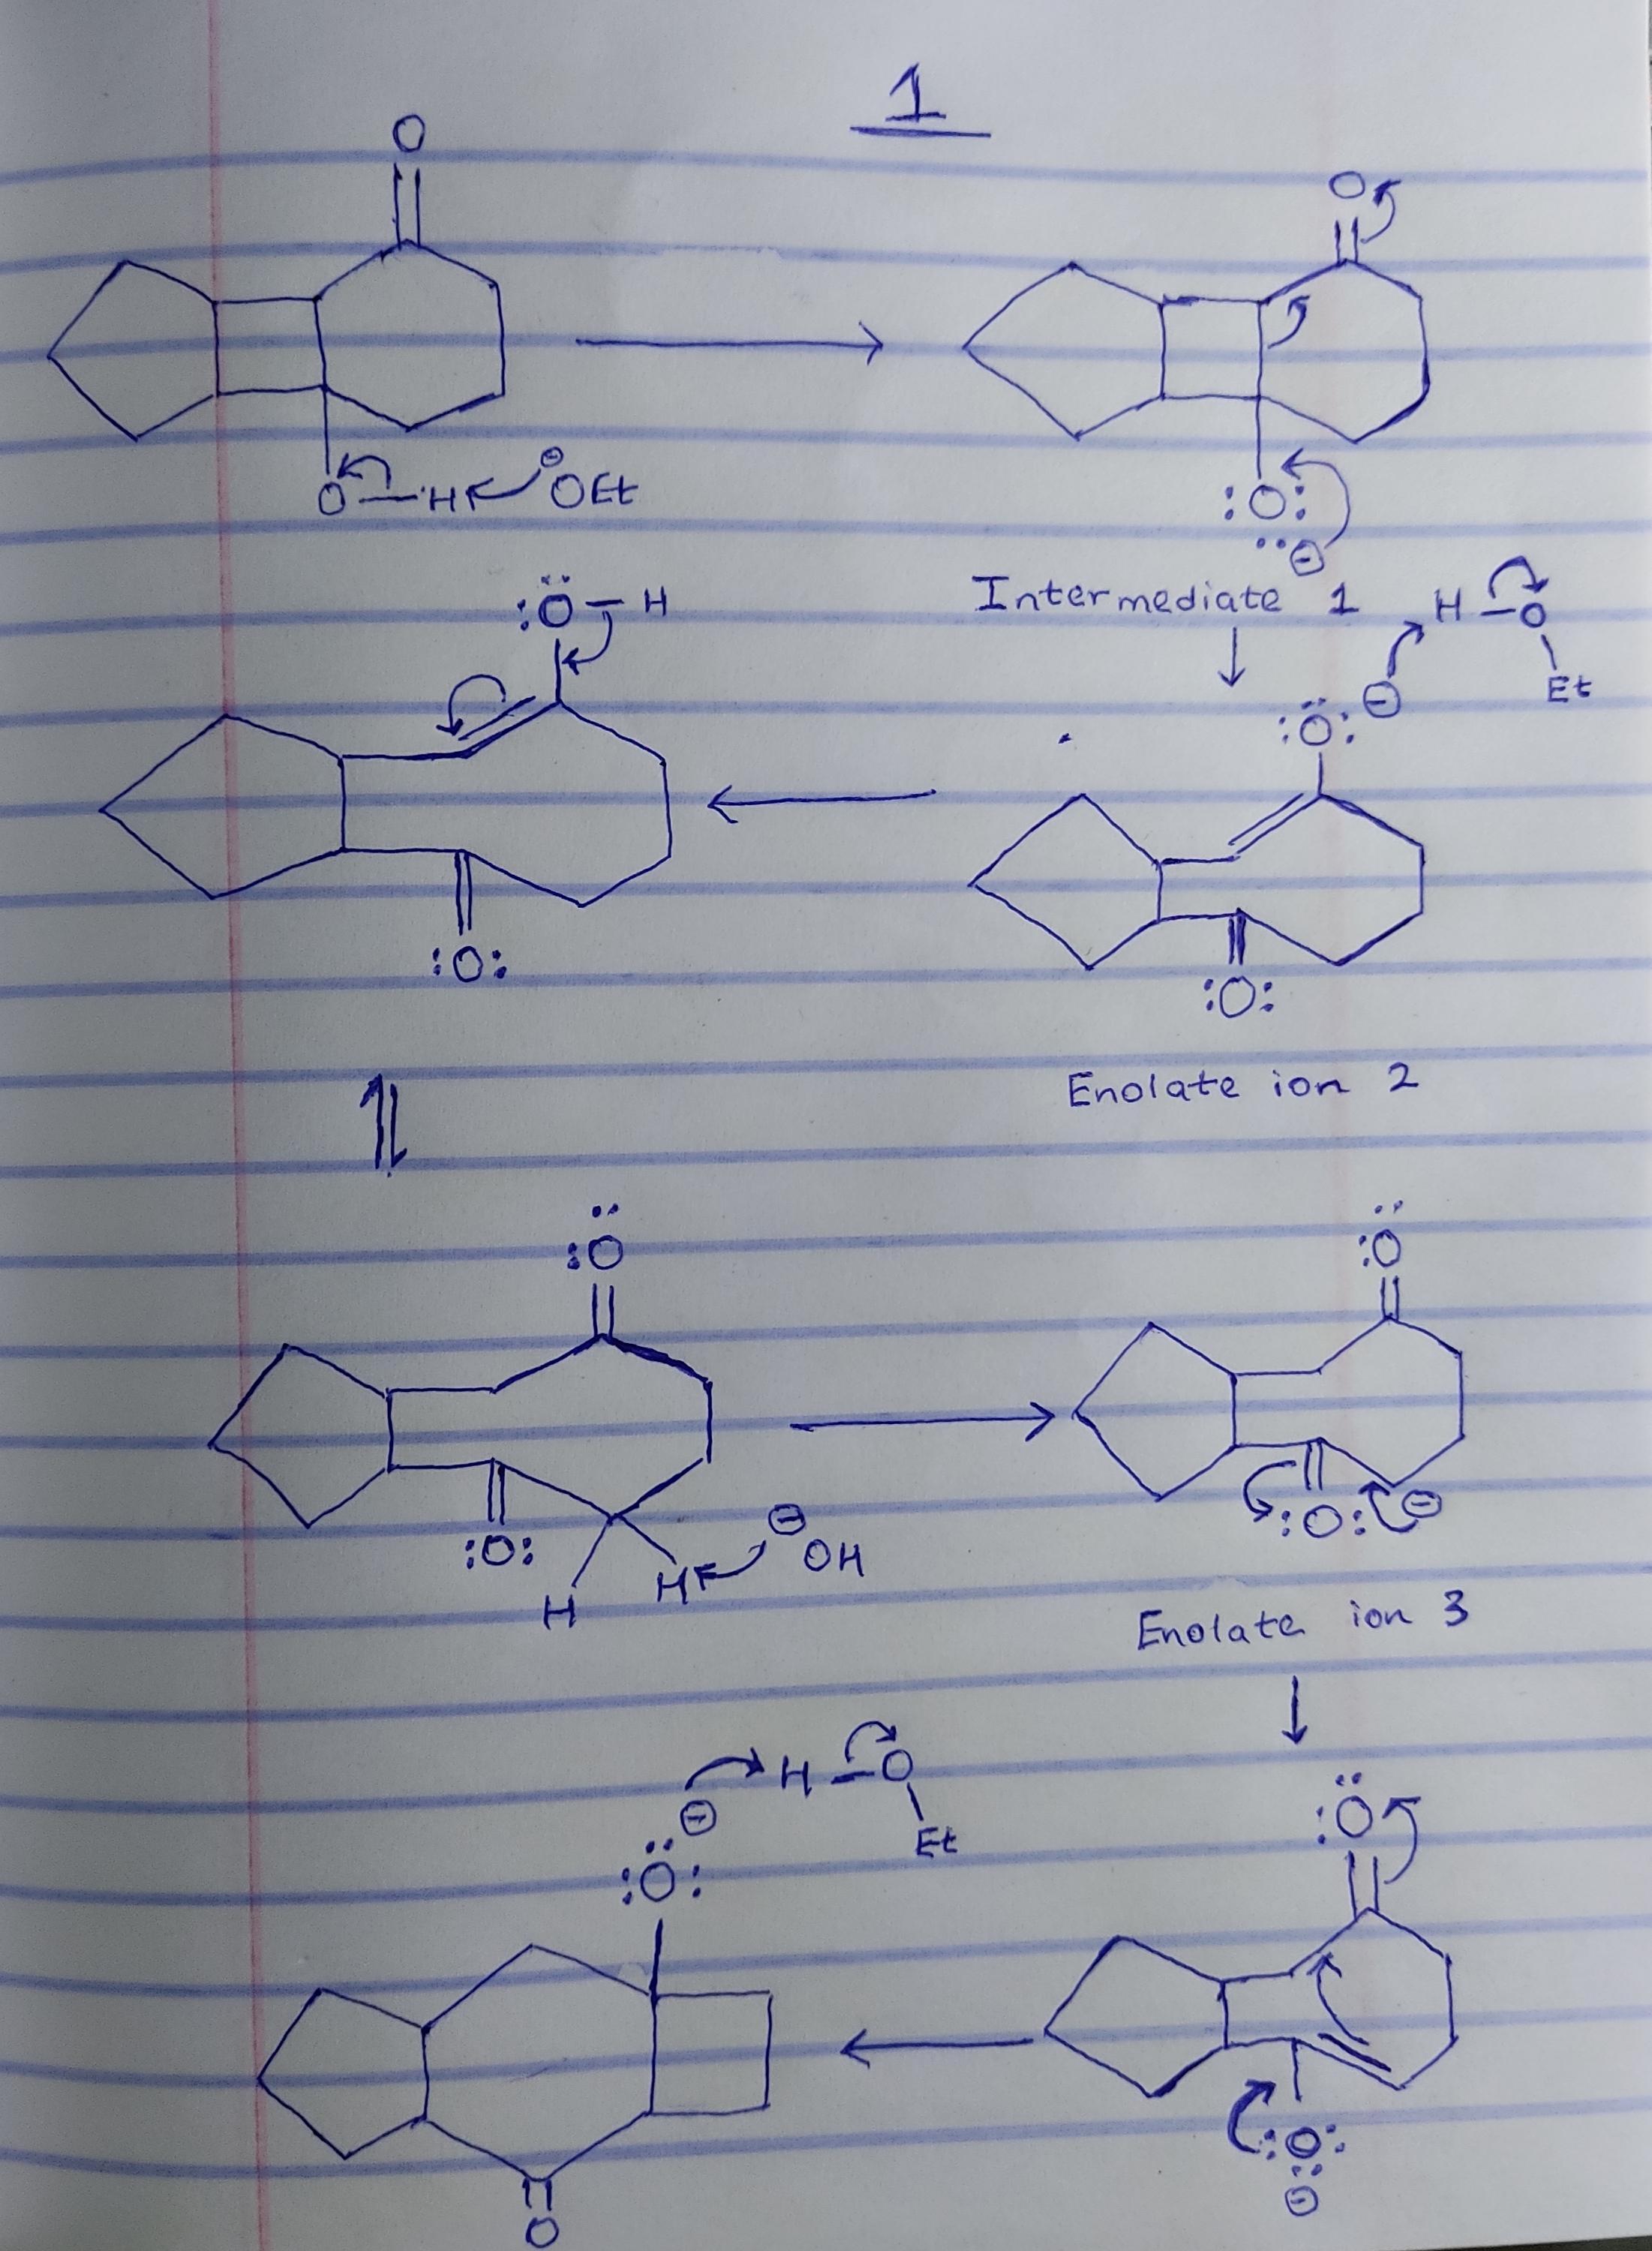 1
O
O
O—H ⊖OEt
:Ö—H
:O:
⊖
Intermediate 1
H—O
Et
:Ö: ⊖
:O:
:O:
Enolate ion 2
:Ö
:Ö
:O: ⊖OH
H H
:O: ⊖
Enolate ion 3
⊖ H—O
Et
:Ö:
:Ö
:O:
⊖
O